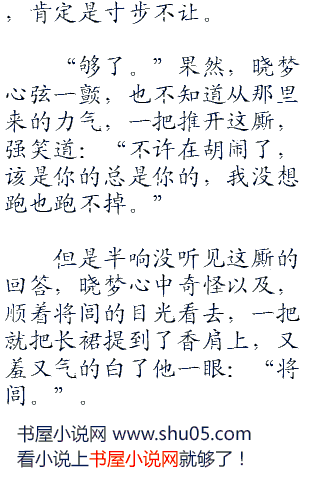 ，肯定是寸步不让。
“够了。”果然，晓梦
心弦一颤，也不知道从那里
来的力气，一把推开这厮，
强笑道：“不许在胡闹了，
该是你的总是你的，我没想
跑也跑不掉。”
但是半响没听见这厮的
回答，晓梦心中奇怪以及，
顺着将闾的目光看去，一把
就把长裙提到了香肩上，又
羞又气的白了他一眼：“将
闾。”。
书屋小说网 www.shu05.com
看小说上书屋小说网就够了！